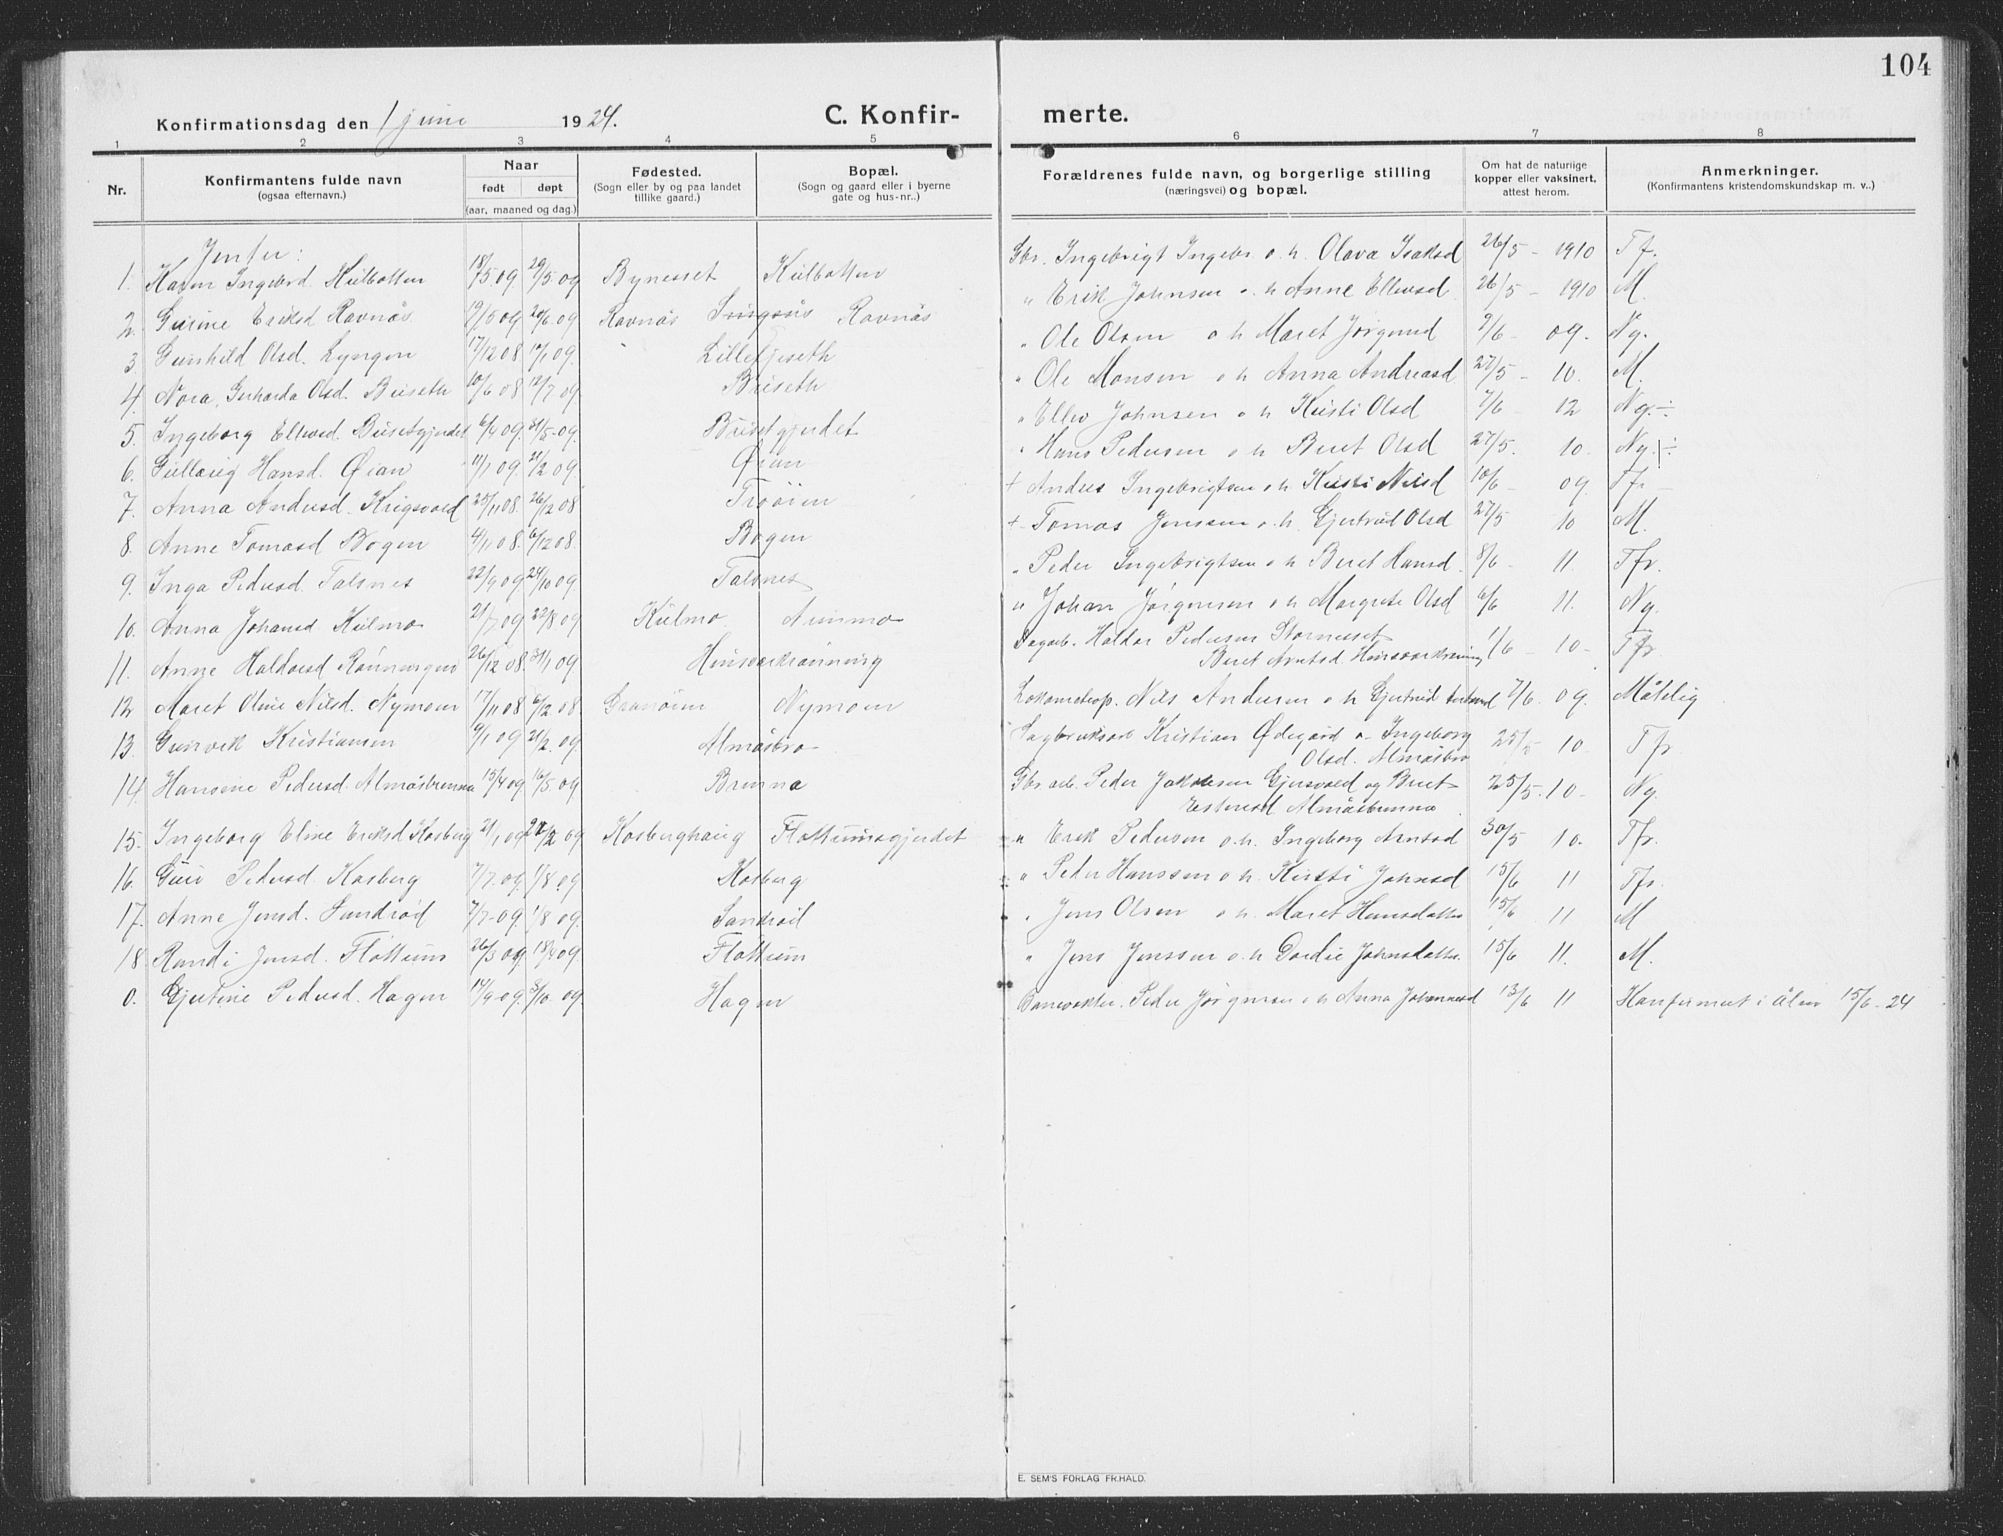 104
Konfirmationsdag den 1 juni 1924. C. Konfir- merte.
1 2 3 4 5 6 7 8
Nr. Konfirmantens fulde navn (ogsaa efternavn.) Naar født døpt (aar, maaned og dag.) Fødested. (Sogn eller by og paa landet tillike gaard.) Bopæl. (Sogn og gaard eller i byerne gate og hus-nr..) Forældrenes fulde navn, og borgerlige stilling (næringsvei) og bopæl. Om hat de naturlige kopper eller vaksinert, attest herom. Anmerkninger. (Konfirmantens kristendomskundskap m. v..)
Jenter:
1. Karen Ingebrd. Kulbotten 18/5 09 29/5 09 Bynesset Kulbotten Gbr. Ingebrigt Ingebr o. h. Olava Isaksd 26/5 - 1910 Tf.
2. Gurine Eriksd Ravnås 19/5 09 20/6 09 Ravnås Singsås Ravnås " Erik Johnsen o. h Anne Ellevsd 26/5 - 1910 M.
3. Gunhild Olsd. Lyngen 17/12 08 17/1 09. Lillefjeseth " Ole Olsen o h Maret Jørgensd 9/6 - 09. Ng.
4. Nora Gerharda Olsd. Buseth 10/6 08 12/7 09 Buseth " Ole Monsen o h Anna Andreasd 27/5 - 10. M.
5. Ingeborg Ellevsd. Busetgjerdet 6/4 09. 31/5-09. Busetgjerdet " Ellev Johnsen o h Kirsti Olsd 7/6 - 12 Ng. ÷
6. Gullaug Hansd. Øian 11/1 09 21/2 09 Øian " Hans Pedersen o h Beret Olsd 27/5. 10. Ng. ÷
7. Anna Andersd. Krigsvold 25/11 08. 26/12 08 Trøien + Anders Ingebrigtsen o h. Kirsti Nilsd 10/6 - 09. Tfr
8. Anne Tomasd Bogen 4/11 08. 6/12 08. Bogen + Tomas Jenssen o. h. Gjertrud Olsd 27/5 10 M.
9. Inga Pedersd. Talsnes 22/9 09 24/10 09 Talsnes " Peder Ingebrigtsen o h Beret Hansd. 8/6 - 11. Tfr.
10. Anna Johansd. Kulmo 21/7 09 22/8 09 Kulmo Aunmo " Johan Jørgensen o h Margrete Olsd 6/6 11. Ng.
11. Anne Haldorsd Rønningen 26/12 08. 31/1 09 Hinsverkrønning Dagarb. Haldor Pedersen Størneset Beret Arntsd. Hinsverkrønning 1/6 - 10- Tfr.
12 Maret Oline Nilsd. Nymoen 17/11 08 6/12 08. Granøien Nymoen Lokomotivp. Nils Andersen o h Gjertrud 7/6. 09. Måtelig
13. Gunvek Kristiansen 9/1 09 21/2. 09. Almåsbro Sagbruksarb Kristian Ødegård o Ingeborg Olsd. Almåsbro 25/5 10. Tfr.
14. Hansine Pedersd. Almåsbrenna 15/4 09 16/5 09 Brenna Gbr arb. Peder Gjersvold og Beret Estensd Almåsbrenna 25/5. 10. Ng.
15. Ingeborg Eline Eriksd Kosberg 21/1 09. 21/2 09 Kosberghaug Flottumsgjerdet " Erik Pedersen o. h. Ingeborg Arntsd 30/5 10. Tfr.
16. Guri Pedersd. Kosberg 7/7. 09. 1/8 09 Kosberg " Peder Hanssen o h. Kirsti Johnsd 15/6 11 Tfr.
17. Anne Jensd. Sandrød 7/7-09. 1/8 09. Sandrød " Jens Olsen o h. Maret Hansdatter 15/6 11 M
18. Randi Jensd. Flottum 26/3 09. 18/4 09. Flottum " Jens Jenssen o. h Dordie Johnsdatter 15/6 11. M.
0. Gjertine Pedersd. Hagen 14/9 09. 3/10 09 Hagen Banevokter. Peder Jørgensen o h Anna Johannesd 13/6 11 Konfirmert i Ålen 15/6-24
E. SEM'S FORLAG FR.HALD.